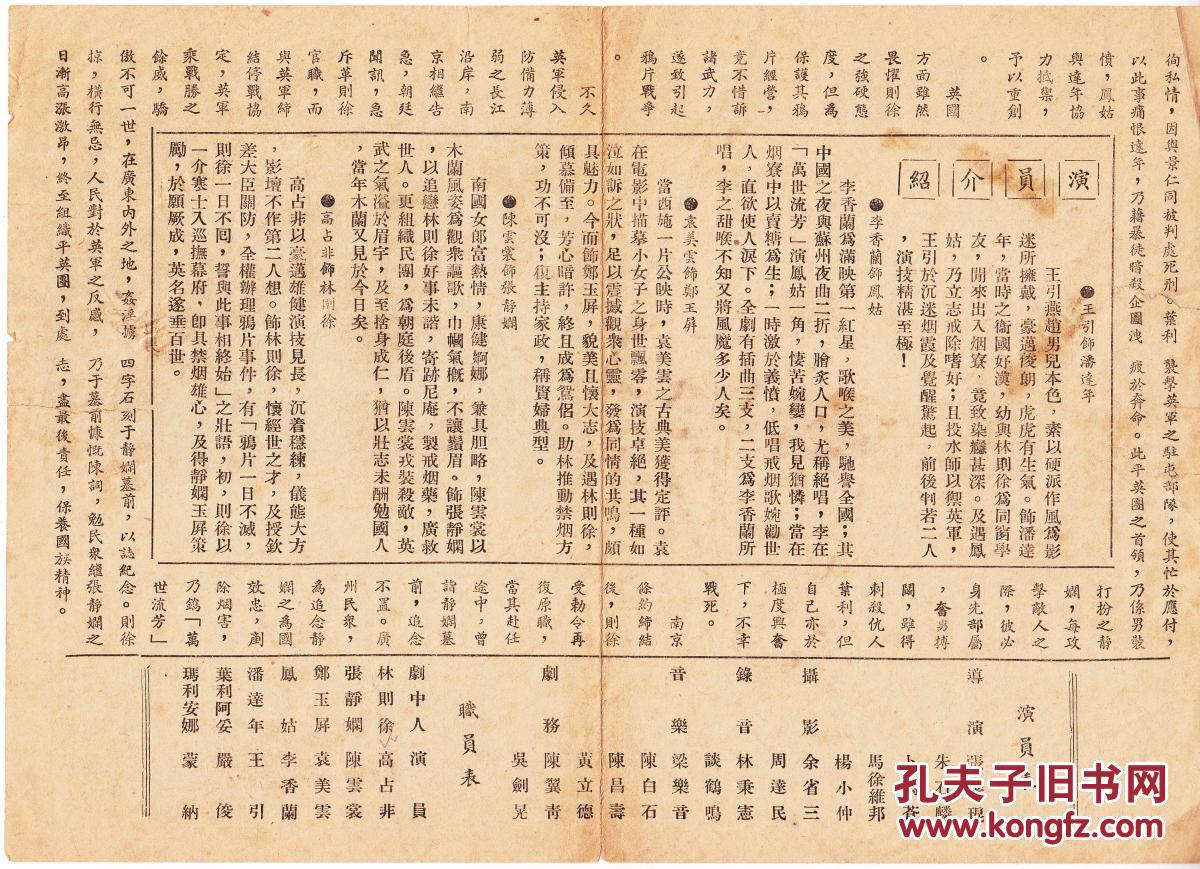 徇私情，因與景仁同被判處死刑。葉利
以此事痛恨達年，乃藉暴徒暗殺企圖洩
憤，鳳姑
與達年協
力抵禦，
予以重創
。
英國
方面雖然
畏懼則徐
之強硬態
度，但為
保護其鴉
片經營，
竟不惜訴
諸武力，
遂致引起
鴉片戰爭
。
不久
英軍侵入
防備力薄
弱之長江
沿岸，南
京相繼告
急，朝廷
聞訊，急
斥革則徐
官職，而
與英軍締
結停戰協
定，英軍
乘戰勝之
餘威，驕
傲不可一世，在廣東內外之地，姦淫擄
掠，橫行無忌，人民對於英軍之反感，
日漸高漲激昂，終至組織平英團，到處
襲擊英軍之駐屯部隊，使其忙於應付，
疲於奔命。此平英團之首領，乃係男裝
打扮之靜
嫻，每攻
擊敵人之
際，彼必
身先部屬
，奮勇搏
鬭，雖得
刺殺仇人
葉利，但
自己亦於
極度興奮
下，不幸
戰死。
南京
條約締結
後，則徐
受勅令再
復原職，
當其赴任
途中，曾
詣靜嫻墓
前，追念
不置。廣
州民衆，
為追念靜
嫻之為國
效忠，剷
除烟害，
乃鐫「萬
世流芳」
四字石刻于靜嫻墓前，以誌紀念。則徐
乃于墓前慷慨陳詞，勉民衆繼張靜嫻之
志，盡最後責任，保養國族精神。
演員介紹
●王引飾潘達年
王引燕趙男兒本色，素以硬派作風爲影
迷所擁戴，豪邁俊朗，虎虎有生氣。飾潘達
年，當時之衛國好漢，幼與林則徐爲同窗學
友，閒來出入烟寮，竟致染癮甚深。及遇鳳
姑，乃立志戒除嗜好；且投水師以禦英軍，
王引於沉迷烟霞及覺醒驚起，前後判若二人
，演技精湛至極！
●李香蘭飾鳳姑
李香蘭爲滿映第一紅星，歌喉之美，馳譽全國；其
中國之夜與蘇州夜曲二折，膾炙人口，尤稱絕唱，李在
「萬世流芳」演鳳姑一角，悽苦婉孌，我見猶憐；當在
烟寮中以賣糖為生；一時激於義憤，低唱戒烟歌婉勸世
人，直欲使人淚下。全劇有插曲三支，二支爲李香蘭所
唱，李之甜喉不知又將風魔多少人矣。
●袁美雲飾鄭玉屛
當西施一片公映時，袁美雲之古典美獲得定評。袁
在電影中描摹小女子之身世飄零，演技卓絕，其一種如
泣如訴之狀，足以震撼觀衆心靈，發爲同情的共鳴，頗
具魅力。今而飾鄭玉屏，貌美且懷大志，及遇林則徐，
傾慕備至，芳心暗許，終且成爲鴛侶。助林推動禁烟方
策，功不可沒；復主持家政，稱賢婦典型。
●陳雲裳飾張靜嫻
南國女郎富熱情，康健婀娜，兼具胆略，陳雲裳以
木蘭風姿爲觀衆謳歌，巾幗氣概，不讓鬚眉。飾張靜嫻
，以追戀林則徐好事未諧，寄跡尼庵，製戒烟藥，廣救
世人。更組織民團，爲朝庭後盾。陳雲裳戎裝殺敵，英
武之氣溢於眉宇，及至捨身成仁，猶以壯志未酬勉國人
，當年木蘭又見於今日矣。
●高占非飾林則徐
高占非以豪邁雄健演技見長，沉着穩練，儀態大方
，影壇不作第二人想。飾林則徐，懷經世之才，及授欽
差大臣關防，全權辦理鴉片事件，有「鴉片一日不滅，
則徐一日不囘，誓與此事相終始」之壯語，初，則徐以
一介寒士入巡撫幕府，卽具禁烟雄心，及得靜嫻玉屏策
勵，於願厥成，英名遂垂百世。
演員
導演 張
朱石麟
卜萬蒼
馬徐維邦
楊小仲
攝影 余省三
周達民
錄音 林秉憲
談鶴鳴
音樂 梁樂音
陳白石
陳昌壽
黃立德
劇務 陳翼靑
吳劍晃
職員表
劇中人 演員
林則徐 高占非
張靜嫻 陳雲裳
鄭玉屏 袁美雲
鳳姑 李香蘭
潘達年 王引
葉利阿妥 嚴俊
瑪利安娜 蒙納
孔夫子旧书网
www.kongfz.com